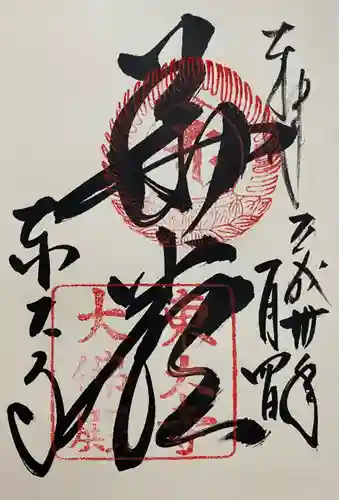 奉拝
平成卅年
月
日
華厳
東大寺
東大寺
大佛殿